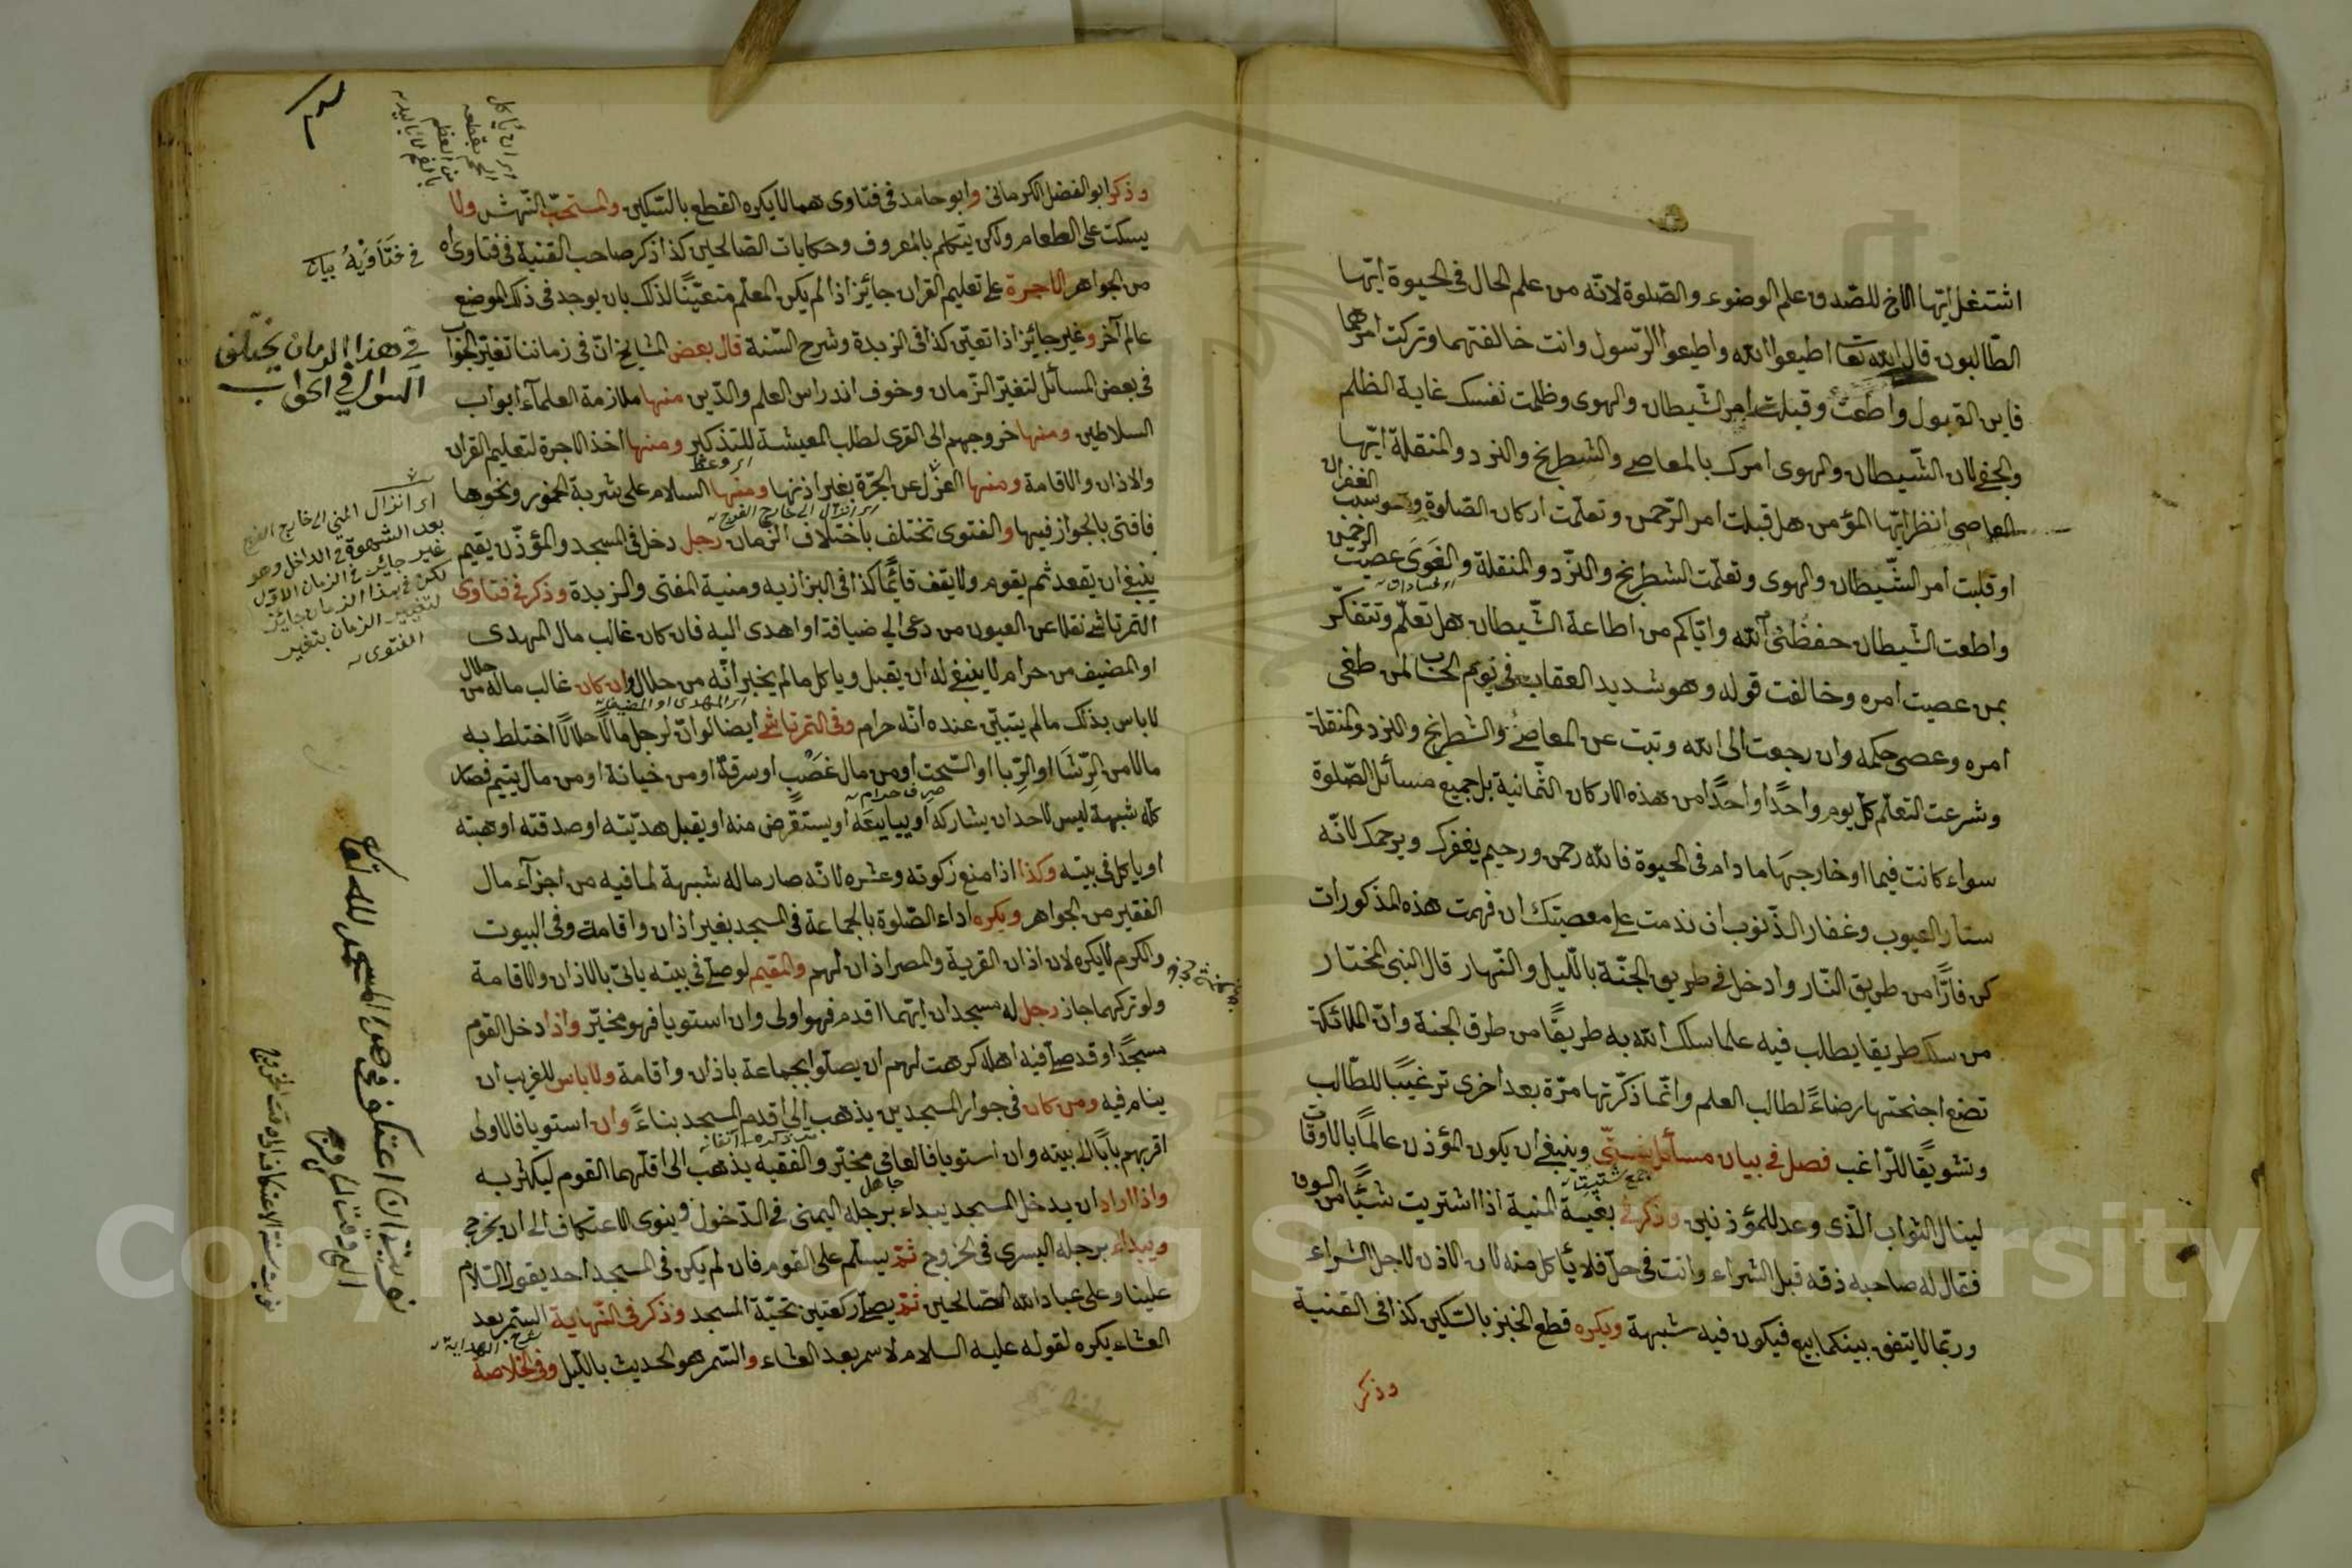 اشتغل ايّها الاخ للصّدق علم الوضوء والصّلوة لانّه من علم الحال فى الحيوة ايّها
الطّالبون قال الله تعا اطيعوا الله واطيعوا الرّسول وانت خالفتهما وتركت امرهما
فاين القبول واطعت وقبلت امر الشّيطان والهوى وظلمت نفسك غاية الظلم
والجفا لان الشّيطان والهوى امرك بالمعاصى والشطرنج والنرد والمنقلة ايّها
العاصى انظر ايّها المؤمن هل قبلت امر الرّحمن وتعلّمت اركان الصّلوة
الغفران
او قبلت امر الشّيطان والهوى وتعلّمت الشطرنج والنّرد والمنقلة والغوى عصيت
الرحمن
واطعت الشّيطان حفظنى الله وايّاكم من اطاعة الشّيطان هل تعلّم وتتفكّر
بمن عصيت امره وخالفت قوله وهو شديد العقاب فى يوم الحساب لمن طغى
امره وعصى حكمه وان رجعت الى الله وتبت عن المعاصى والشطرنج والنرد والمنقلة
وشرعت التعلّم كلّ يوم واحدًا واحدًا من هذه الاركان الثّمانية بل جميع مسائل الصّلوة
سواء كانت فيها او خارجها مادام فى الحيوة فالله رحمن ورحيم يغفرك ويرحمك لانّه
ستار العيوب وغفار الذّنوب ان ندمت على معصيتك ان فهمت هذه المذكورات
كن فارًّا من طريق النّار وادخل فى طريق الجنّة بالّليل والنّهار قال النبى المختار
من سلك طريقا يطلب فيه علما سلك الله به طريقًا من طرق الجنة وانّ الملائكة
تضع اجنحتها رضاءً لطالب العلم وانّما ذكّرتها مرّة بعد اخرى ترغيبًا للطّالب
وتشويقًا للرّاغب فصل فى بيان مسائل شتّى وينبغى ان يكون المؤذن عالمًا بالاوقات
جمع شتيت
لينال الثواب الّذى وعد للمؤذنين وذكر فى بغية المنية اذا اشتريت شيئًا من السوق
فقال له صاحبه ذقه قبل الشراء وانت فى حلّ فلا يأكل منه لان الاذن لاجل الشراء
وربّما لا يتفق بينكما بيع فيكون فيه شبهة ويكره قطع الخبز بالسّكين كذا فى القنية
وذكر
اى ان ياكل
اللحم بقطعه
من العظم
بالفم لا باليد
وذكر ابو الفضل الكرمانى وابو حامد فى فتاوى هما لا يكره القطع بالسّكين والمستحبّ النّهش ولا
يسكت على الطعام ولكن يتكلم بالمعروف وحكايات الصّالحين كذا ذكر صاحب القنية فى فتاواه
من الجواهر الاجرة على تعليم القران جائز اذا لم يكن المعلّم متعيّنًا لذلك بان يوجد فى ذلك الموضع
عالم آخر وغير جائز اذا تعيّن كذا فى الزبدة وشرح السّنة قال بعض المشايخ انّ فى زماننا تغيّر الجواب
فى بعض المسائل لتغيّر الزّمان وخوف اندراس العلم والدّين منها ملازمة العلماء ابواب
السلاطين ومنها خروجهم الى القرى لطلب المعيشة للتذكير ومنها اخذ الاجرة لتعليم القران
اى وعظ
والاذان والاقامة ومنها العزل عن الحرّة بغير اذنها ومنها السلام على شربة الخمور ونحوها
اى انزال الى خارج الفرج
فافتى بالجواز فيها والفتوى تختلف باختلاف الزّمان رجل دخل فى المسجد والمؤذّن يقيم
ينبغى ان يقعد ثم يقوم ولا يقف قائمًا كذا فى البزازيه ومنية المفتى والزبدة وذكر فى فتاوى
التمرتاشى نقلا عن العيون من دعى الى ضيافة او اهدى اليه فان كان غالب مال المهدى
او المضيف من حرام لا ينبغى له ان يقبل وياكل مالم يخبر انّه من حلال وان كان غالب ماله من حلال
اى المهدى او المضيف
لا باس بذلك مالم يتبيّن عنده انّه حرام وفى التمرتاشى ايضا لو انّ لرجل مالًا حلالًا اختلط به
مالا من الرّشا او الرّبا او السّحت او من مال غصب او سرقة او من خيانة او من مال يتيم فصار
صرف حرام
كلّه شبهة ليس لاحد ان يشاركه او يبايعه او يستقرض منه او يقبل هديّته او صدقته او هبته
او ياكل فى بيته وكذا اذا منع زكوته وعشره لانّه صار ماله شبهة لما فيه من اجزاء مال
الفقير من الجواهر ويكره اداء الصّلوة بالجماعة فى المسجد بغير اذان واقامة وفى البيوت
والكرم لا يكره لان اذان القرية والمصر اذان لهم والمقيم لو صلّى فى بيته ياتى بالاذان والاقامة
ولو تركهما جاز رجل له مسجدان ايّهما اقدم فهو اولى وان استويا فهو مخيّر واذا دخل القوم
مسجدًا وقد صلّى فيه اهله كرهت لهم ان يصلّوا بجماعة باذان واقامة ولا باس للغريب ان
ينام فيه ومن كان فى جوار المسجدين يذهب الى اقدم المسجد بناءً وان استويا فالاولى
اقربهم بابًا الى بيته وان استويا فالعامى مخيّر والفقيه يذهب الى اقلّهما القوم ليكثر به
جاهل
واذا اراد ان يدخل المسجد يبداء برجله اليمنى فى الدّخول وينوى الاعتكاف الى ان يخرج
ويبداء برجله اليسرى فى الخروج ثمّ يسلّم على القوم فان لم يكن فى المسجد احد يقول السّلام
علينا وعلى عباد الله الصّالحين ثمّ يصلّى ركعتين تحيّة المسجد وذكر فى النّهاية السّمر بعد
شرح الهداية
العشاء يكره لقوله عليه السلام لا سمر بعد العشاء والسّمر هو الحديث بالّليل وفى الخلاصة
فى فتاويه بيان
فى هذا الزمان يختلف
السوال فى الجواب
اى انزال المنى الى خارج الفرج
بعد الشهوة فى الداخل وهو
غير جائز فى الزمان الاول
لكن فى هذا الزمان جائز
لتغيير الزمان بتغير
الفتوى
نويت ان اعتكف فى هذا المسجد لله تعا
نويت سنة الاعتكاف الى وقت الخروج